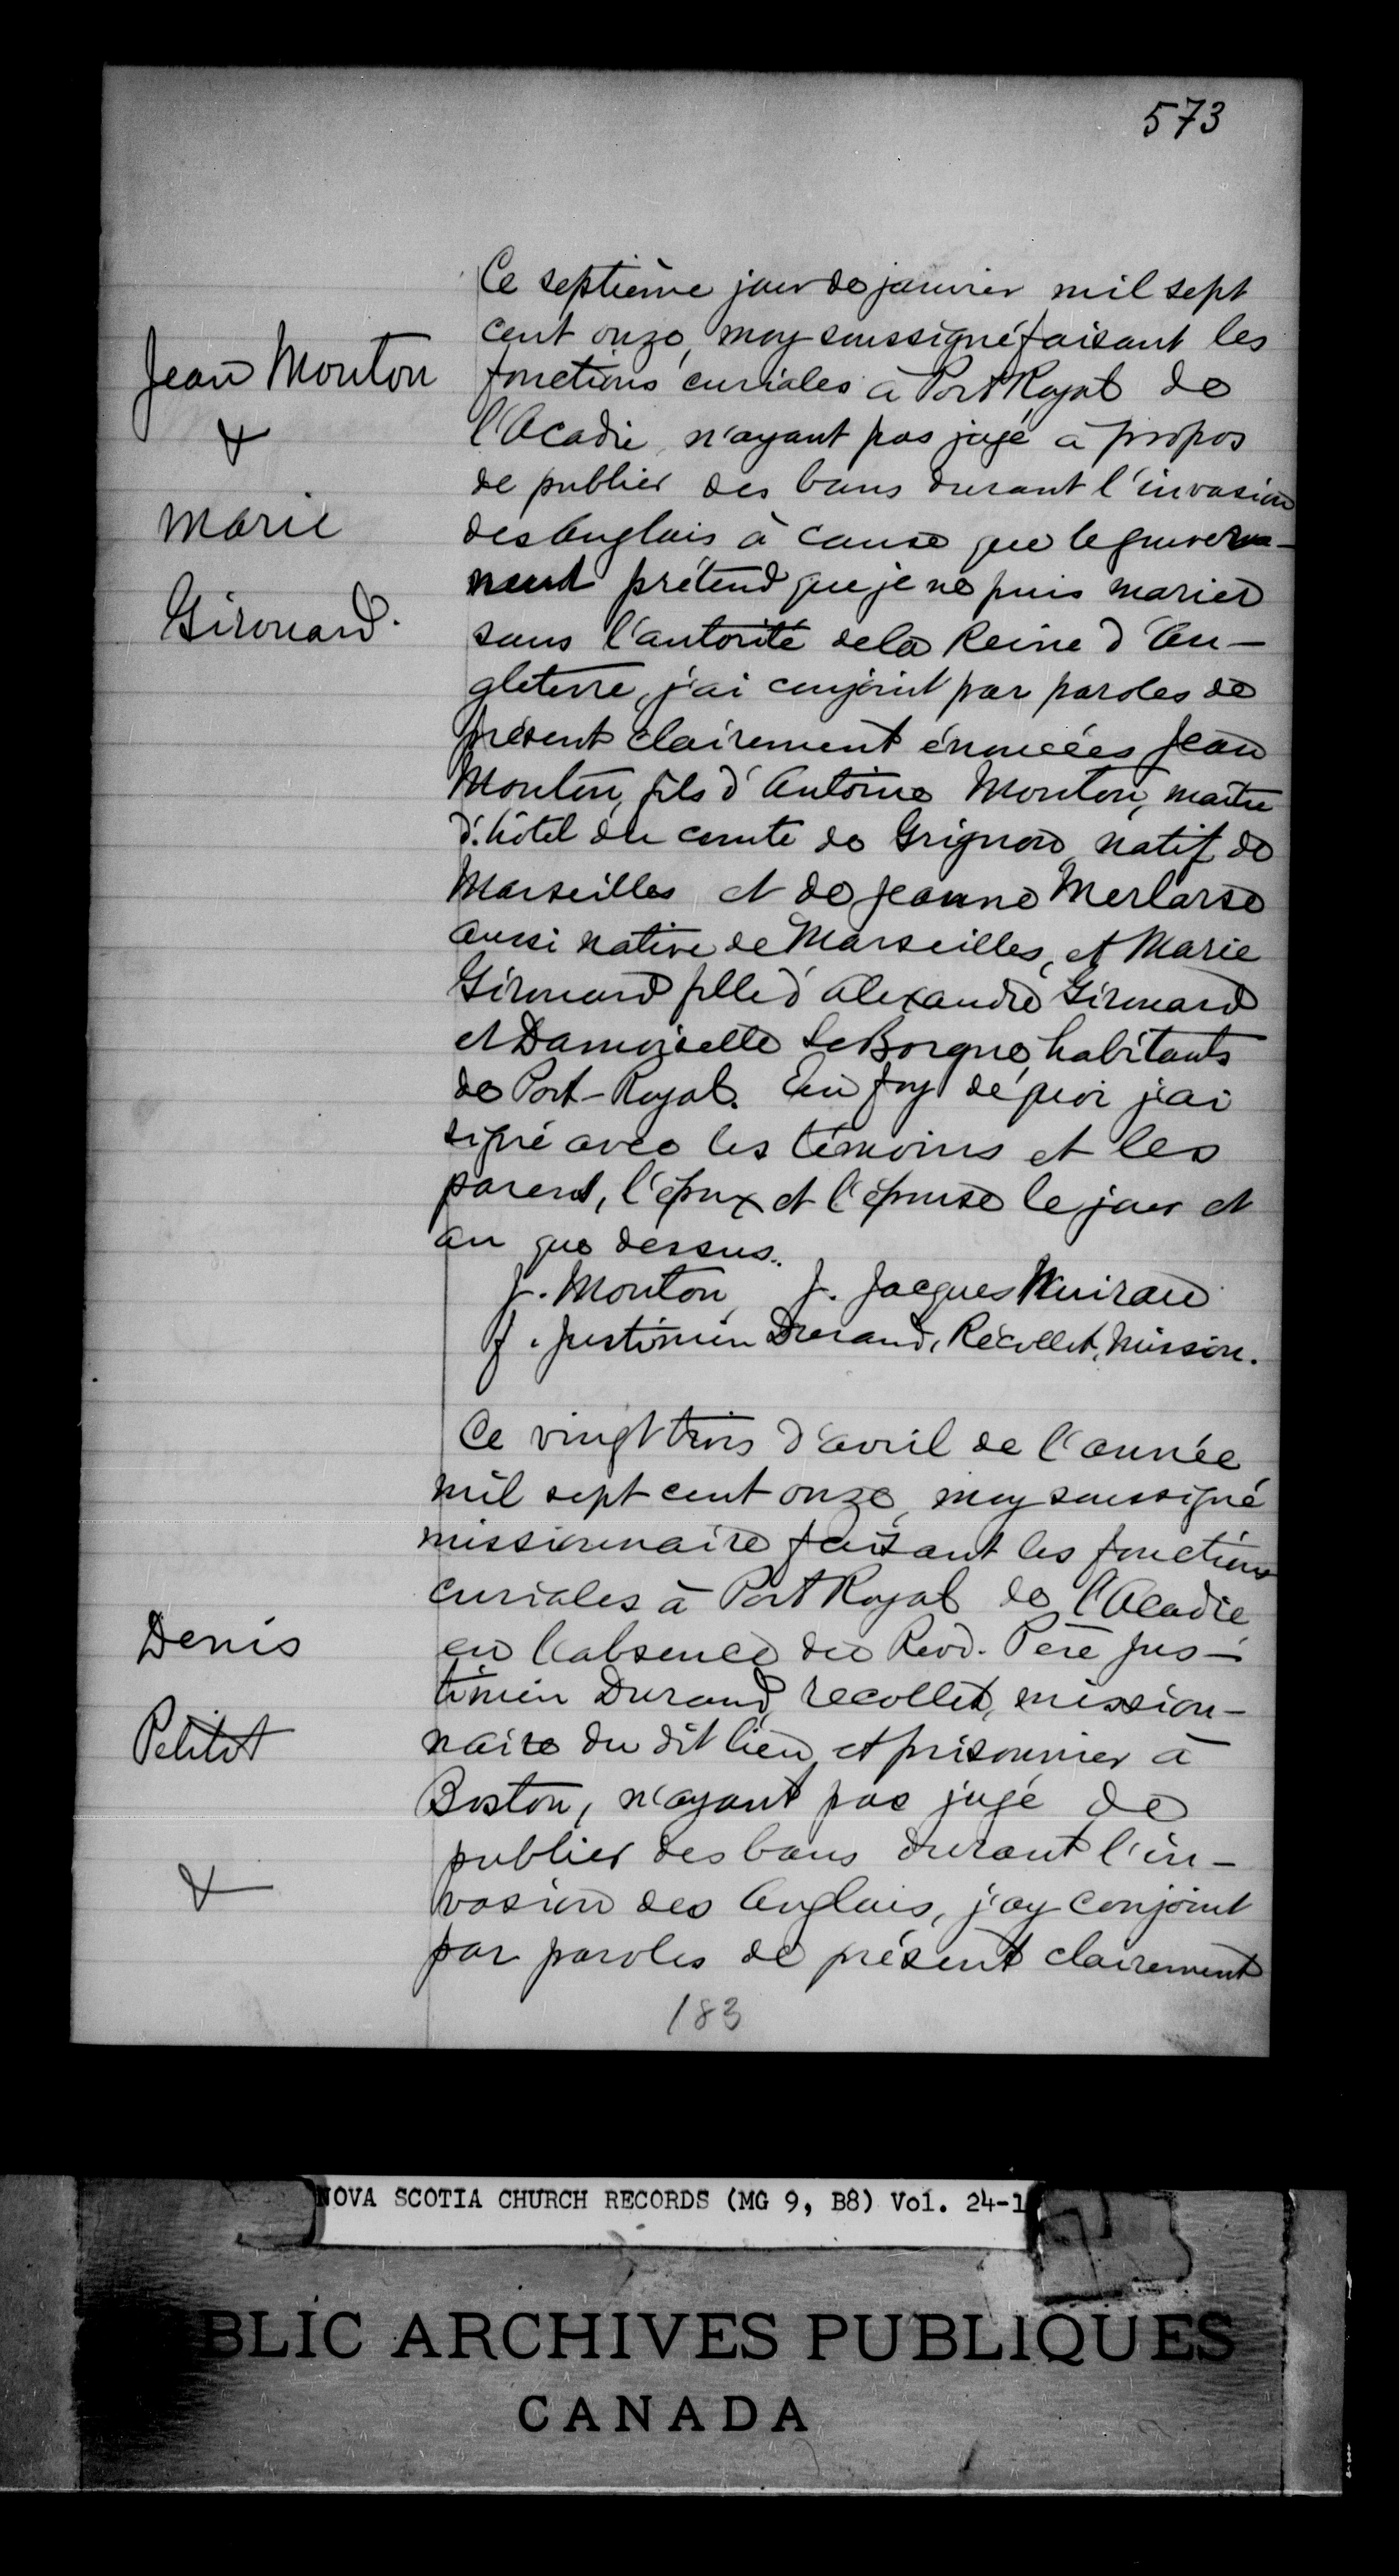 573
Jean Mouton
&
Marie
Girouard.
Ce septième jour de janvier mil sept
cent onze, moy soussigné faisant les
fonctions curiales à Port Royal de
l'Acadie, n'ayant pas jugé à propos
de publier des bans durant l'invasion
des Anglais à cause que le gouverne-
ment prétend que je ne puis marier
sans l'autorité de la Reine d'An-
gleterre, j'ai conjoint par paroles de
présent clairement énoncées Jean
Mouton, fils d'Antoine Mouton, maitre
d'hôtel du comte de Grignon, natif de
Marseilles et de Jeanne Merlarse
aussi native de Marseilles, et Marie
Girouard fille d'Alexandre Girouard
et Damoiselle Le Borgne, habitants
de Port-Royal. En foy de quoi j'ai
signé avec les témoins et les
parents, l'époux et l'épouse le jour et
an que dessus.
J. Mouton, J. Jacques
f. Justinien Durand, Récollet, Mission.
Denis
Petitot
&
Ce vingt trois d'avril de l'année
mil sept cent onze, moy soussigné
missionnaire faisant les fonctions
curiales à Port Royal de l'Acadie
en l'absence du Revd. Père Jus-
tinien Durand, recollet, mission-
naire du dit lieu, et prisonnier à
Boston, n'ayant pas jugé de
publier des bans durant l'in-
vasion des Anglais, j'ay conjoint
par paroles de présent clairement
183
NOVA SCOTIA CHURCH RECORDS (MG 9, B8) Vol. 24-1
BLIC ARCHIVES PUBLIQUES
CANADA